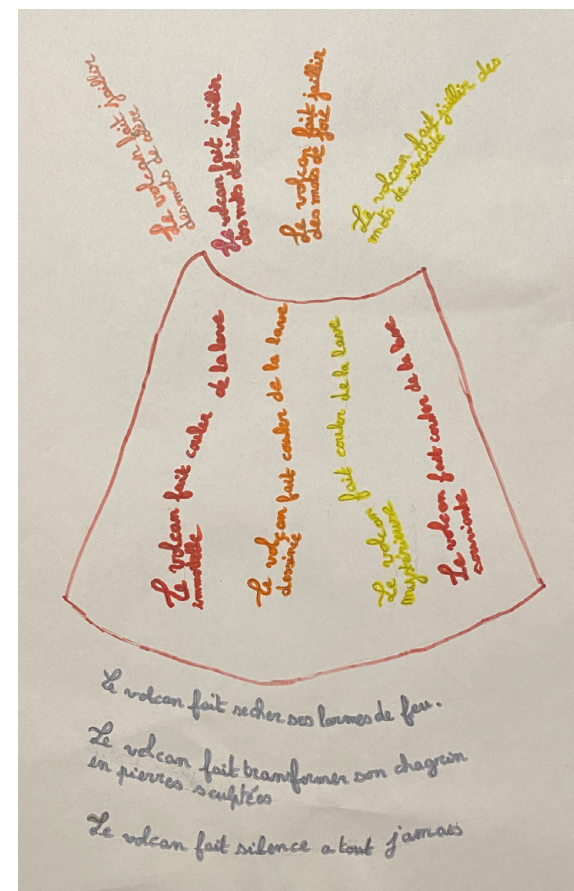 Le volcan fait jaillir
des mots de
Le volcan fait jaillir
des mots d'hisène
Le volcan fait jaillir
des mots de joie
Le volcan fait jaillir des
mots de sérénité
Le volcan fait couler de la lave
immortelle
Le volcan fait couler de la lave
dessinée
Le volcan fait couler de la lave
mystérieuse
Le volcan fait couler de la lave
souriante
Le volcan fait secher ses larmes de feu.
Le volcan fait transformer son chagrin
en pierres sculptées
Le volcan fait silence a tout jamais